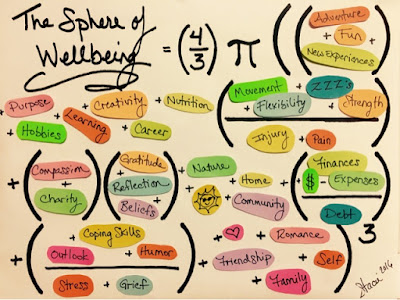 The Sphere of Wellbeing = (4/3) π (
Adventure
+ Fun
+ New Experiences
+ Purpose + Creativity + Nutrition
+ Hobbies + Learning + Career
+ (Movement + ZZZ's
+ Flexibility + Strength
Injury + Pain)
+ (Compassion
+ Charity)
(Gratitude +
Reflection +
Beliefs)
+ Nature
+ Home
+ + Community
+ (Finances
$ + Expenses
Debt)
+ (Coping Skills
+ Outlook + Humor
Stress + Grief)
+ ♥ + Romance
+ Friendship + Self
+ Family
) 3
Staci 2016